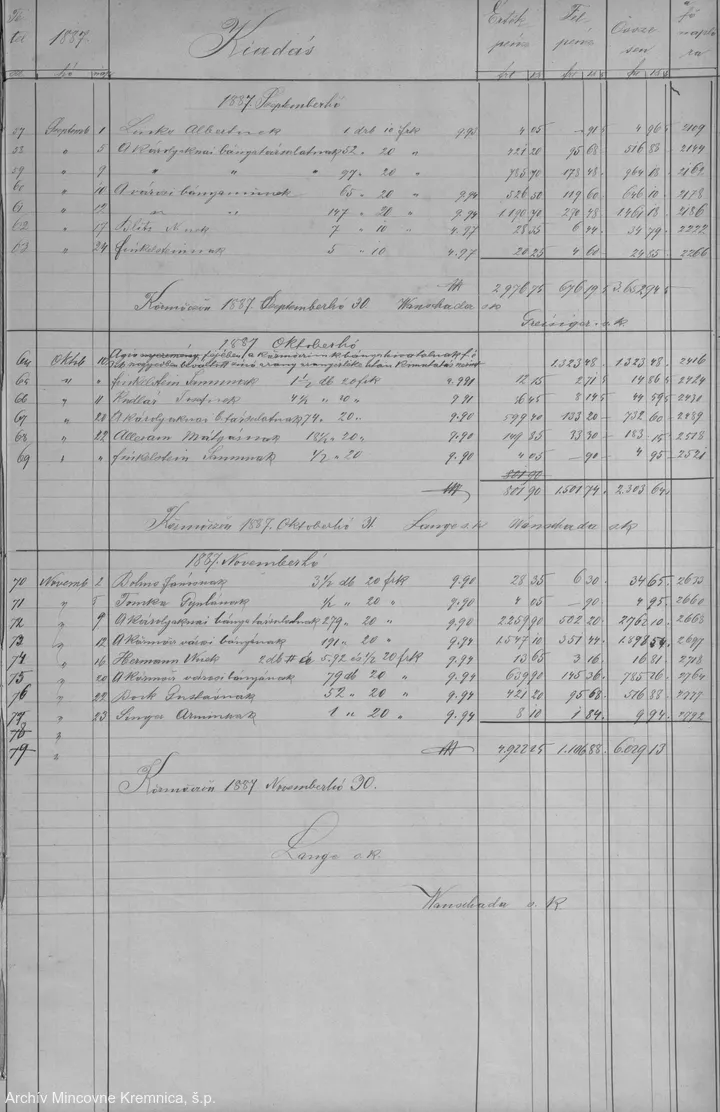 1887. Kiadás Érték pénz Fel pénz Össze sen
hó nap frt kr frt kr frt kr
1887 Septemberhó
57 Septemb 1 Albertnek 1 drb 10 frk 9.95 4 05 — 91 5 4 96 5 2109
5 A károlyaknai bánya társulatnak 52 " 20 " 421 20 95 68 516 88 2144
59 " 9 " " " 97 " 20 " 785 70 178 48 964 18 2162
60 " 10 A városi bányaminnek 65 " 20 " 9.94 526 50 119 60 646 10 2178
61 " 12 " " 147 " 20 " 9.94 1190 70 270 48 1461 18 2186
62 " 17 7 " 10 " 4.97 28 35 6 44 34 79 2222
63 " 24 Finkelsteinnak 5 " 10 4.97 20 25 4 60 24 85 2266
2976 75 676 19 5 3.652 94 5
Körmöczön 1887 Septemberhó 30. Wanschada s.k
Greisiger s.k.
1887 Oktoberhó
64 Oktob 10 1.323 48 1323 48 2416
65 " " Finkelstein 1 1/2 db 20 frk 9.91 12 15 2 71 5 14 86 5 2424
66 " 11 4 1/2 " 20 " 9.91 36 45 8 14 5 44 59 5 2430
67 " 20 A károlyaknai b. társulatnak 74 " 20 " 9.90 599 40 133 20 732 60 2489
68 " 22 Mátyásnak 18 1/2 " 20 " 9.90 149 85 33 30 183 15 2518
69 " " Finkelstein 1/2 " 20 9.90 4 05 — 90 4 95 2521
801 90
801 90 1.501 74 2.303 64
Körmöczön 1887. Oktoberhó 31. Lange s.k Wanschada s.k
1887. Novemberhó
70 Novemb 2 Jánosnak 3 1/2 db 20 frk 9.90 28 35 6 30 34 65 2633
71 " 5 Tomka Gyulának 1/2 " 20 " 9.90 4 05 — 90 4 95 2660
72 " 9 A károlyaknai bánya társulatnak 279 " 20 " 9.90 2259 90 502 20 2762 10 2668
73 " 12 A körmöcz városi bányának 191 " 20 " 9.94 1.547 10 351 44 1.898 54 2697
74 " 16 Hermann 2 db # á 5.92 és 1/2 20 frk 9.94 13 65 3 16 16 81 2708
75 " 20 A körmöcz városi bányának 79 db 20 " 9.94 639 90 145 36 785 26 2764
76 " 22 Gusztávnak 52 " 20 " 9.94 421 20 95 68 516 88
77 " 23 Singer Arminnak 1 " 20 " 9.94 8 10 1 84 9 94 2792
78 "
79 " 4.922 25 1.106 88 6.029 13
Körmöczön 1887 Novemberhó 30.
Lange s.k.
Wanschada s. k.
Archív Mincovne Kremnica, š.p.